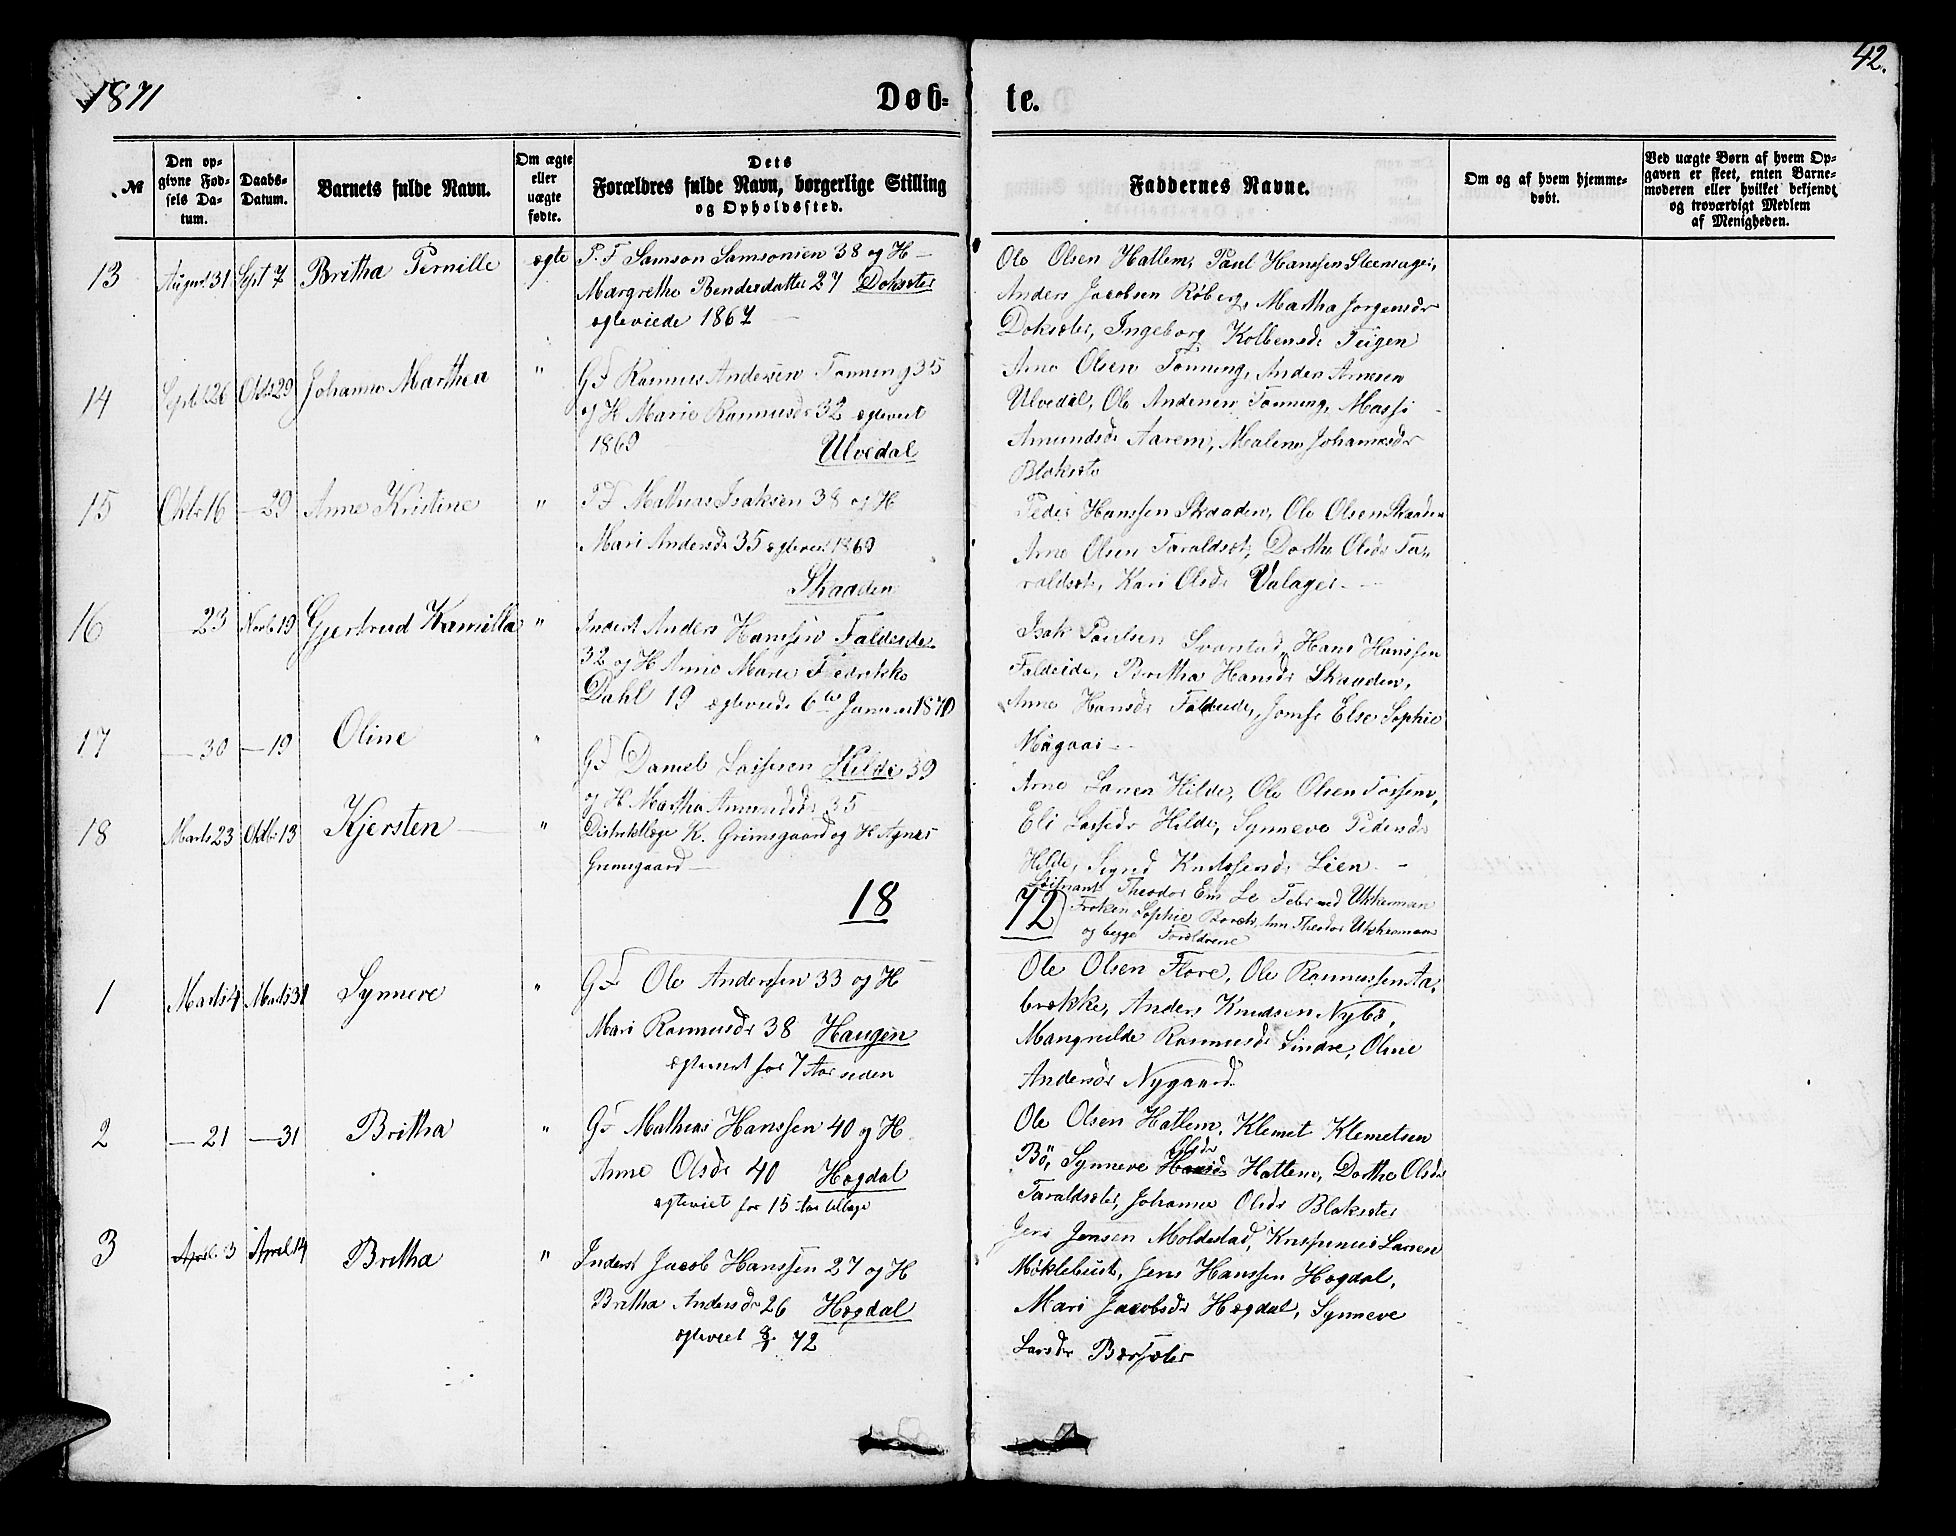 1871
Døb-
te.
42.
№
Den op-
givne Fød-
sels Da-
tum.
Daabs-
Datum.
Barnets fulde Navn.
Om ægte
eller
uægte
fødte.
Dets
Forældres fulde Navn, borgerlige Stilling
og Opholdssted.
Faddernes Navne.
Om og af hvem hjemme-
døbt.
Ved uægte Børn af hvem Op-
gaven er skeet, enten Barne-
moderen eller hvilket bekjendt
og troværdigt Medlem
af Menigheden.
13
August 31
Sept 7
Britha Pernille
ægte
P. F Samson Samsonsen 38 og H
Margrethe Bendesdatter 27 Dokseter
egteviede 1867
Ole Olsen Hatlem, Paul Hanssen Steensager,
Anders Jacobsen Røberg, Martha Jørgensdr
Dokseter, Ingeborg Kolbensdr Teigen
14
Septbr 26
Oktbr 29
Johanne Marthea
"
GF Rasmus Andersen Tonning 35
og H Marie Rasmusdr 32 egteviet
1869
Ulvedal
Arne Olsen Tonning, Anders Arnesen
Ulvedal, Ole Andersen Tonning, Massi
Amundsdr Aarem, Malene Johannesdr
Blaksæte
15
Oktbr 16
— 29
Anne Kristine
"
P.F Mathias Isaksen 38 og H
Mari Andersdr 35 egteviet 1869
Skaaden
Peder Hanssen Skaaden, Ole Olsen Skaaden
Arne Olsen Taraldset, Dorthe Olsdr Ta-
raldset, Kari Olsdr Valager
16
— 23
Novbr 19
Gjertrud Kamilla
"
Inderst Anders Hanssen Faldeide
32 og H Anne Marie Fredrikke
Dahl 19 egteviede 6te Januar 1870
Isak Paulsen Svarstad, Hans Hanssen
Faldeide, Britha Hansdr Skaaden,
Anne Hansdr Faldeide, Jomfr Else Sophie
17
— 30
— 19
Oline
"
GF Daniel Lassesen Hilde 39
og H Martha Amundsdr 35
Arne Larsen Hilde, Ole Olsen
Eli Lassedr Hilde, Synneve Pedersdr
Hilde, Sigrid Knudsensdr Lien
18
Marts 23
Oktbr 13
Kjersten
"
Distriktslæge K. Grimsgaard og H Agnes
Grimsgaard
18
72
Løitnant Theodor Em Le Febr med Ukkerman
Frøken Sophie Borch, Theodor Ukkermann
og begge Forældrene
1
Marts 4
Marts 31
Synneve
"
GF Ole Anderssen 33 og H
Mari Rasmusdr 38 Haugen
egteviet for 7 Aar siden
Ole Olsen Flore, Ole Rasmussen Aa-
brekke, Anders Knudsen Nybø,
Mangnilde Rasmusdr Sindre, Oline
Andersdr Nygaard
2
— 21
— 31
Britha
"
GF Mathias Hanssen 40 og H
Anne Olsdr 40 Hogdal
egteviet for 15 Aar tilbage
Ole Olsen Hatlem, Klemet Klemetsen
Olsdr
Bö, Synneve Hansdr Hatlem, Dorthe Olsdr
Taraldseter, Johanne Olsdr Blakseter
3
April 3
April 14
Britha
"
Inderst Jacob Hanssen 27 og H
Britha Andersdr 26 Hogdal
egteviet 72
Jens Jensen Moldestad, Rasmus Larsen
Møklebust, Jens Hanssen Hogdal,
Mari Jacobsdr Hogdal, Synneve
Larsdr